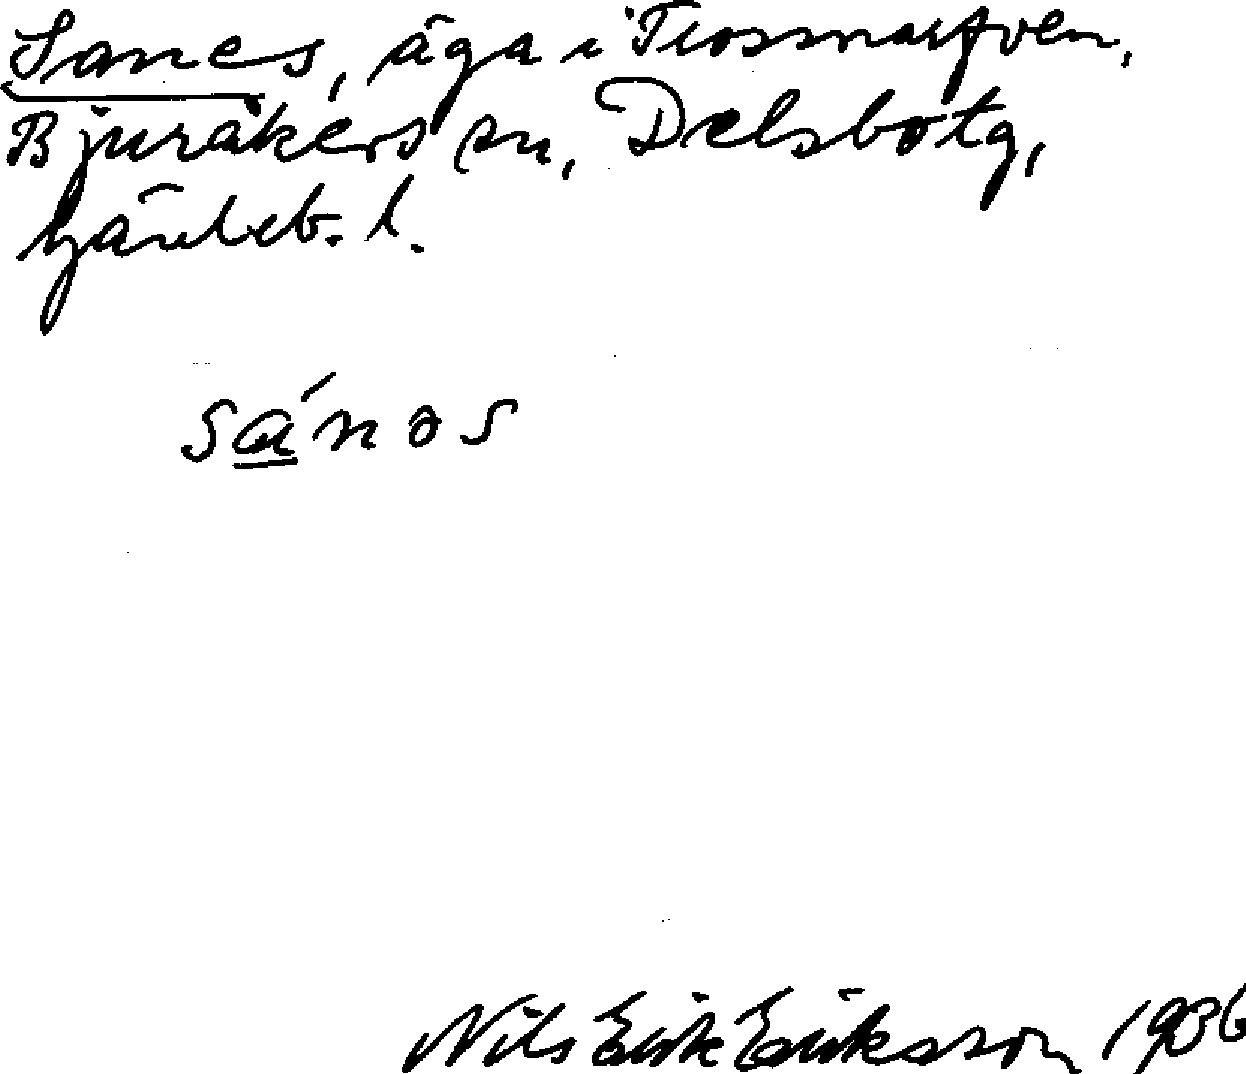 Sanes, äga i Trossnarfven,
Bjuråkers sn, Delsbo tg,
Gävleb. l.
sánəs
Nils Erik Eriksson 1936